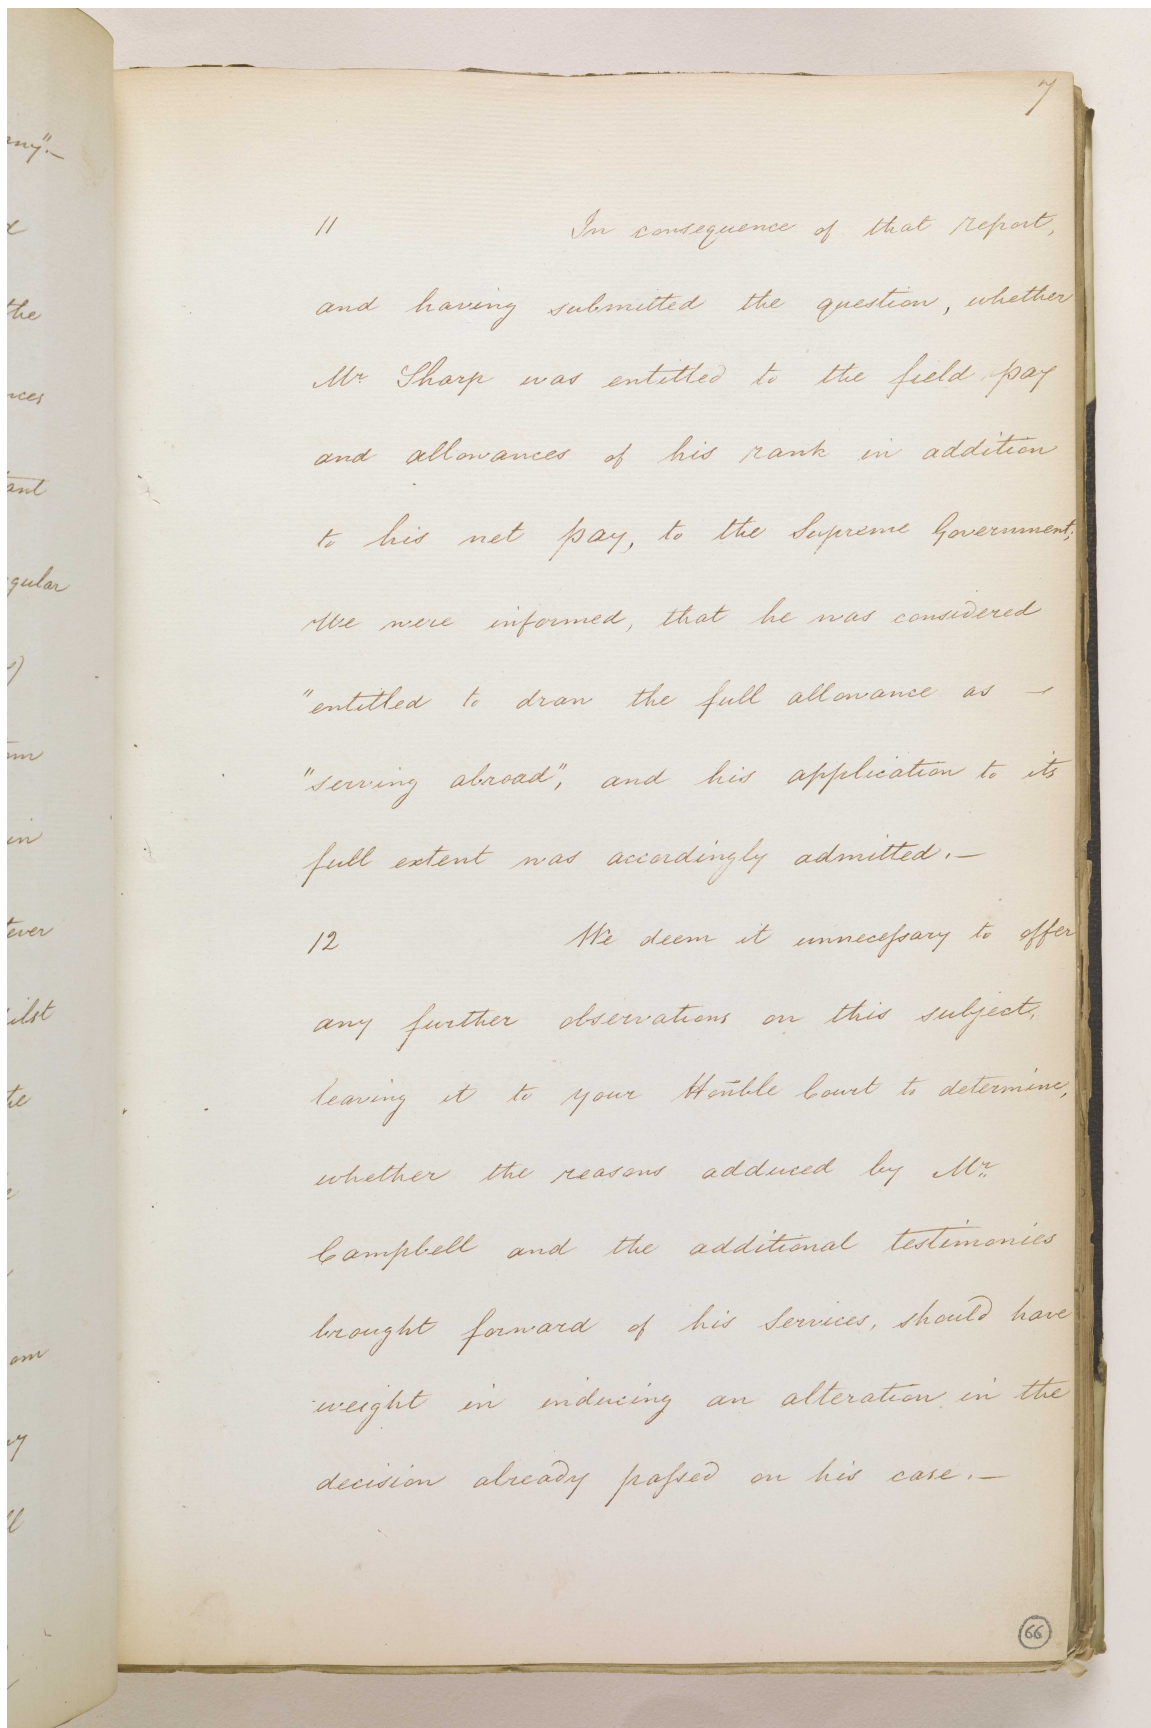 any".—
the
tant
gular
in
tever
7
11 In consequence of that report,
and having submitted the question, whether
Mr Sharp was entitled to the field pay
and allowances of his rank in addition
to his net pay, to the Supreme Government;
We were informed, that he was considered
"entitled to draw the full allowance as —
"serving abroad", and his application to its
full extent was accordingly admitted.—
12 We deem it unnecessary to offer
any further observations on this subject,
leaving it to your Honble Court to determine,
whether the reasons adduced by Mr.
Campbell and the additional testimonies
brought forward of his Services, should have
weight in inducing an alteration in the
decision already passed on his case.—
66